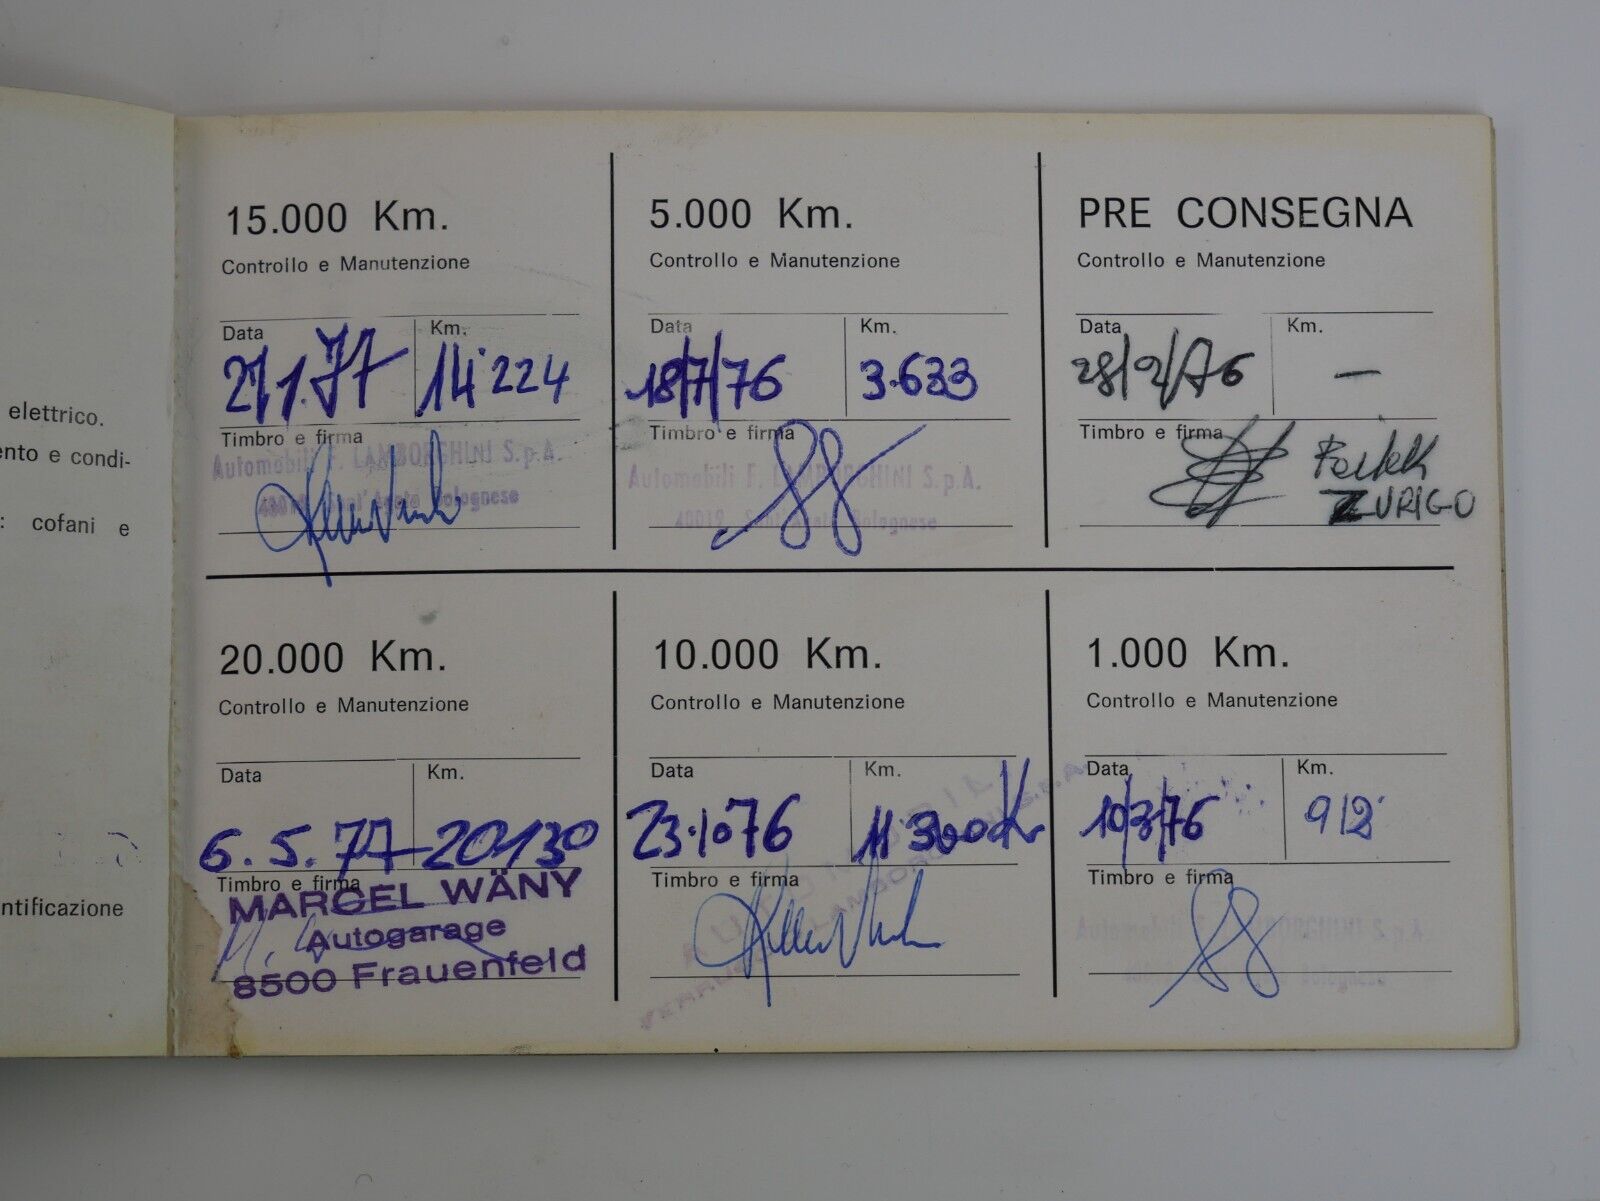 elettrico.
ento e condi-
: cofani e
ntificazione
15.000 Km.
Controllo e Manutenzione
Data
Km.
27/1.77
14'224
Timbro e firma
Automobili F. LAMBORGHINI S.p.A.
40019 Sant'Agata Bolognese
5.000 Km.
Controllo e Manutenzione
Data
Km.
18/7/76
3.633
Timbro e firma
Automobili F. LAMBORGHINI S.p.A.
40019 Sant'Agata Bolognese
PRE CONSEGNA
Controllo e Manutenzione
Data
Km.
28/2/76
—
Timbro e firma
ZURIGO
20.000 Km.
Controllo e Manutenzione
Data
Km.
6.5.77
20130
Timbro e firma
MARCEL WÄNY
Autogarage
8500 Frauenfeld
10.000 Km.
Controllo e Manutenzione
Data
Km.
23.1076
11300
Timbro e firma
1.000 Km.
Controllo e Manutenzione
Data
Km.
10/3/76
912
Timbro e firma
Automobili F. LAMBORGHINI S.p.A.
Bolognese